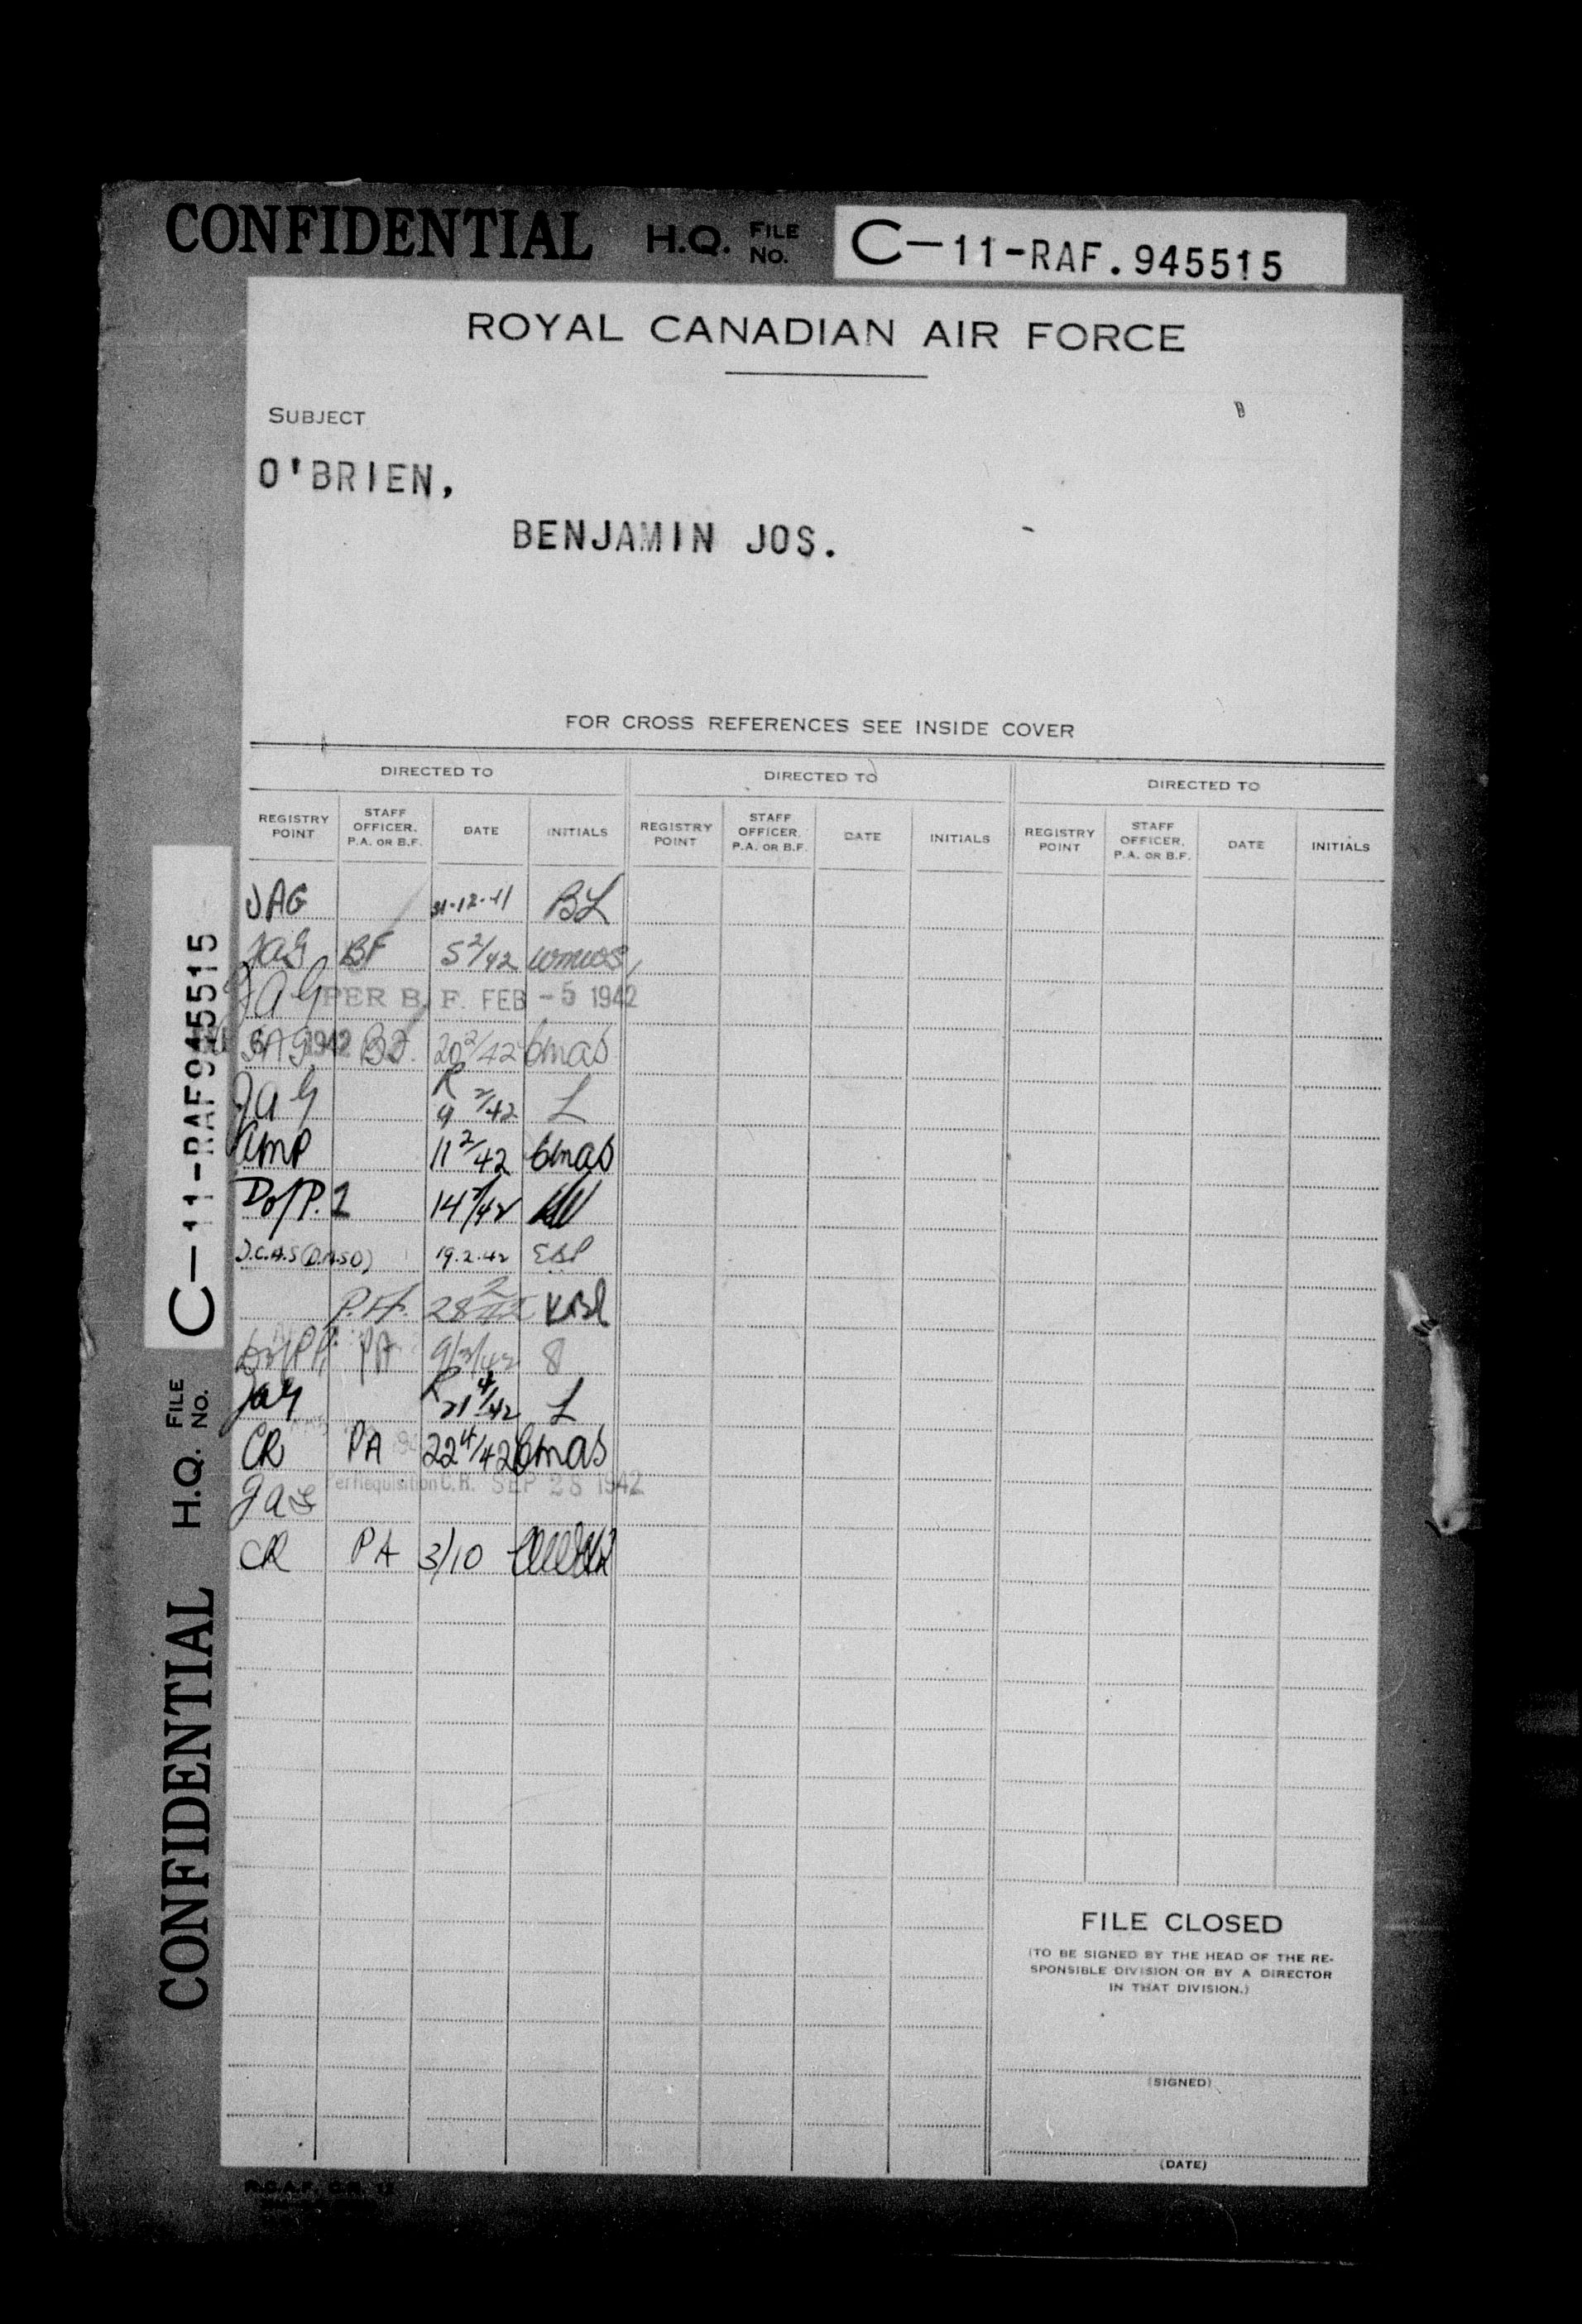 CONFIDENTIAL H.Q. FILE No. C-11-RAF.945515
ROYAL CANADIAN AIR FORCE
SUBJECT
O'BRIEN,
BENJAMIN JOS.
FOR CROSS REFERENCES SEE INSIDE COVER
DIRECTED TO DIRECTED TO DIRECTED TO
REGISTRY POINT STAFF OFFICER. P.A. OR B.F. DATE INITIALS REGISTRY POINT STAFF OFFICER. P.A. OR B.F. DATE INITIALS REGISTRY POINT STAFF OFFICER. P.A. OR B.F. DATE INITIALS
JAG 31-12-41 BL
JAG BF 5 2/42
JAG PER B.F. FEB -5 1942
JAG 1942 BF. 20 2/42
JAG R 9 2/42 L
AMP 11 2/42
D of P.1 14 2/42
D.C.A.S (D.M.S.O) 19.2.42
P.A. 28 2
PA 9/3/42
JAG R 21 4/42 L
CR PA 22 4/42
JAG er Requisition C.R. SEP 28 1942
CR PA 3/10
FILE CLOSED
(TO BE SIGNED BY THE HEAD OF THE RE-
SPONSIBLE DIVISION OR BY A DIRECTOR
IN THAT DIVISION.)
(SIGNED)
(DATE)
CONFIDENTIAL H.Q. FILE No. C-11-RAF945515